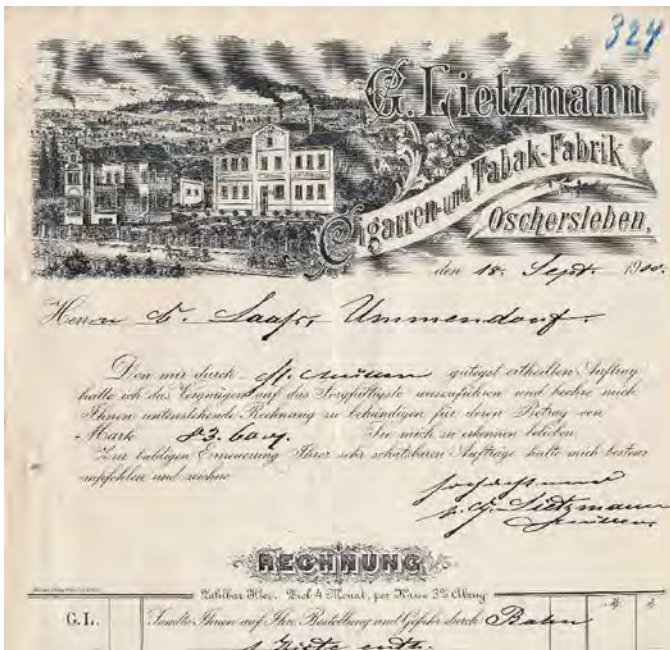 324
G. Lietzmann
Cigarren- und Tabak-Fabrik
Oschersleben,
den 18. Sept. 1900.
Herrn Ummendorf.
Den mir durch gütigst ertheilten Auftrag
hatte ich das Vergnügen auf das Sorgfältigste auszuführen und beehre mich
Ihnen untenstehende Rechnung zu behändigen für deren Betrag von
Mark 83.60 Sie mich zu erkennen belieben.
Zur baldigen Erneuerung Ihrer sehr schätzbaren Aufträge halte mich bestens
empfohlen und zeichne
G. Lietzmann
RECHNUNG
Zahlbar Hier. Ziel 4 Monat, per Kasse 3% Abzug
G. L. Sandte Ihnen auf Ihre Bestellung und Gefahr durch Bahn
1 Kiste enth.